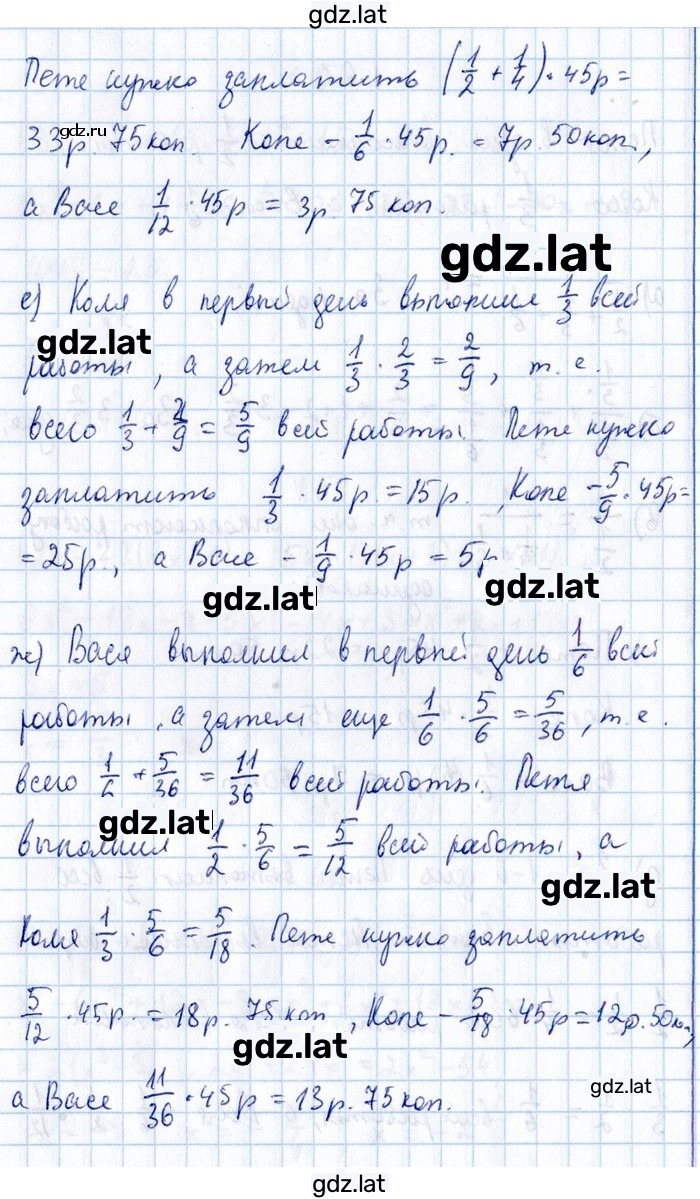 gdz.lat
Пете нужно заплатить (1/2 + 1/4) · 45р =
33р 75коп. Коле – 1/6 · 45р. = 7р. 50коп.,
gdz.ru
а Васе 1/12 · 45р = 3р 75 коп.
gdz.lat
е) Коля в первый день выполнил 1/3 всей
gdz.lat
работы, а затем 1/3 · 2/3 = 2/9, т. е.
всего 1/3 + 2/9 = 5/9 всей работы. Пете нужно
заплатить 1/3 · 45р. = 15р., Коле – 5/9 · 45р =
= 25р., а Васе – 1/9 · 45р = 5р
gdz.lat
gdz.lat
ж) Вася выполнил в первый день 1/6 всей
работы, а затем еще 1/6 · 5/6 = 5/36, т. е.
всего 1/6 + 5/36 = 11/36 всей работы. Петя
gdz.lat
выполнил 1/2 · 5/6 = 5/12 всей работы, а
gdz.lat
Коля 1/3 · 5/6 = 5/18. Пете нужно заплатить
5/12 · 45р. = 18р. 75 коп, Коле – 5/18 · 45р = 12р. 50коп,
gdz.lat
а Васе 11/36 · 45р = 13р. 75 коп.
gdz.lat
gdz.lat